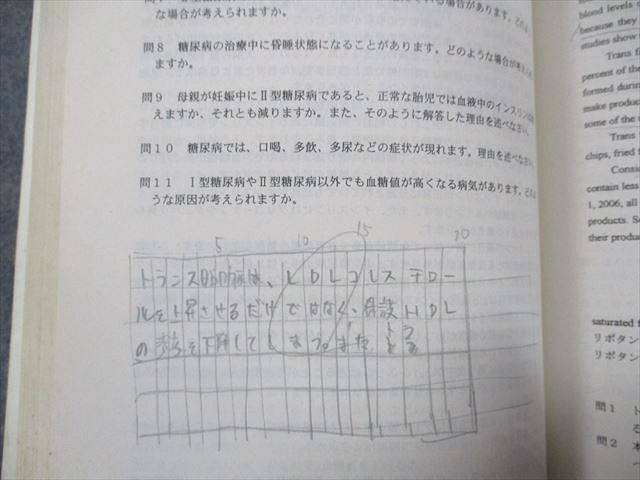 な場合が考えられますか。
問8 糖尿病の治療中に昏睡状態になることがあります。どのような場合が考えられ
ますか。
問9 母親が妊娠中にⅡ型糖尿病であると、正常な胎児では血液中のインスリン
えますか、それとも減りますか。また、そのように解答した理由を述べなさい。
問10 糖尿病では、口喝、多飲、多尿などの症状が現れます。理由を述べなさい。
問11 Ⅰ型糖尿病やⅡ型糖尿病以外でも血糖値が高くなる病気があります。どのよ
うな原因が考えられますか。
5 10 15 20
トランス脂肪酸は、LDLコレステロー
ルを上昇させるだけではなく、HDL
の を下降してしまう
blood levels
because they
studies show
Trans f
percent of the
formed durin
make produc
some of the
Trans
chips, fried f
Consi
contain less
1, 2006, all
products. S
their produ
saturated f
リポタン
リポタン
問1 ト
そ
問2 本